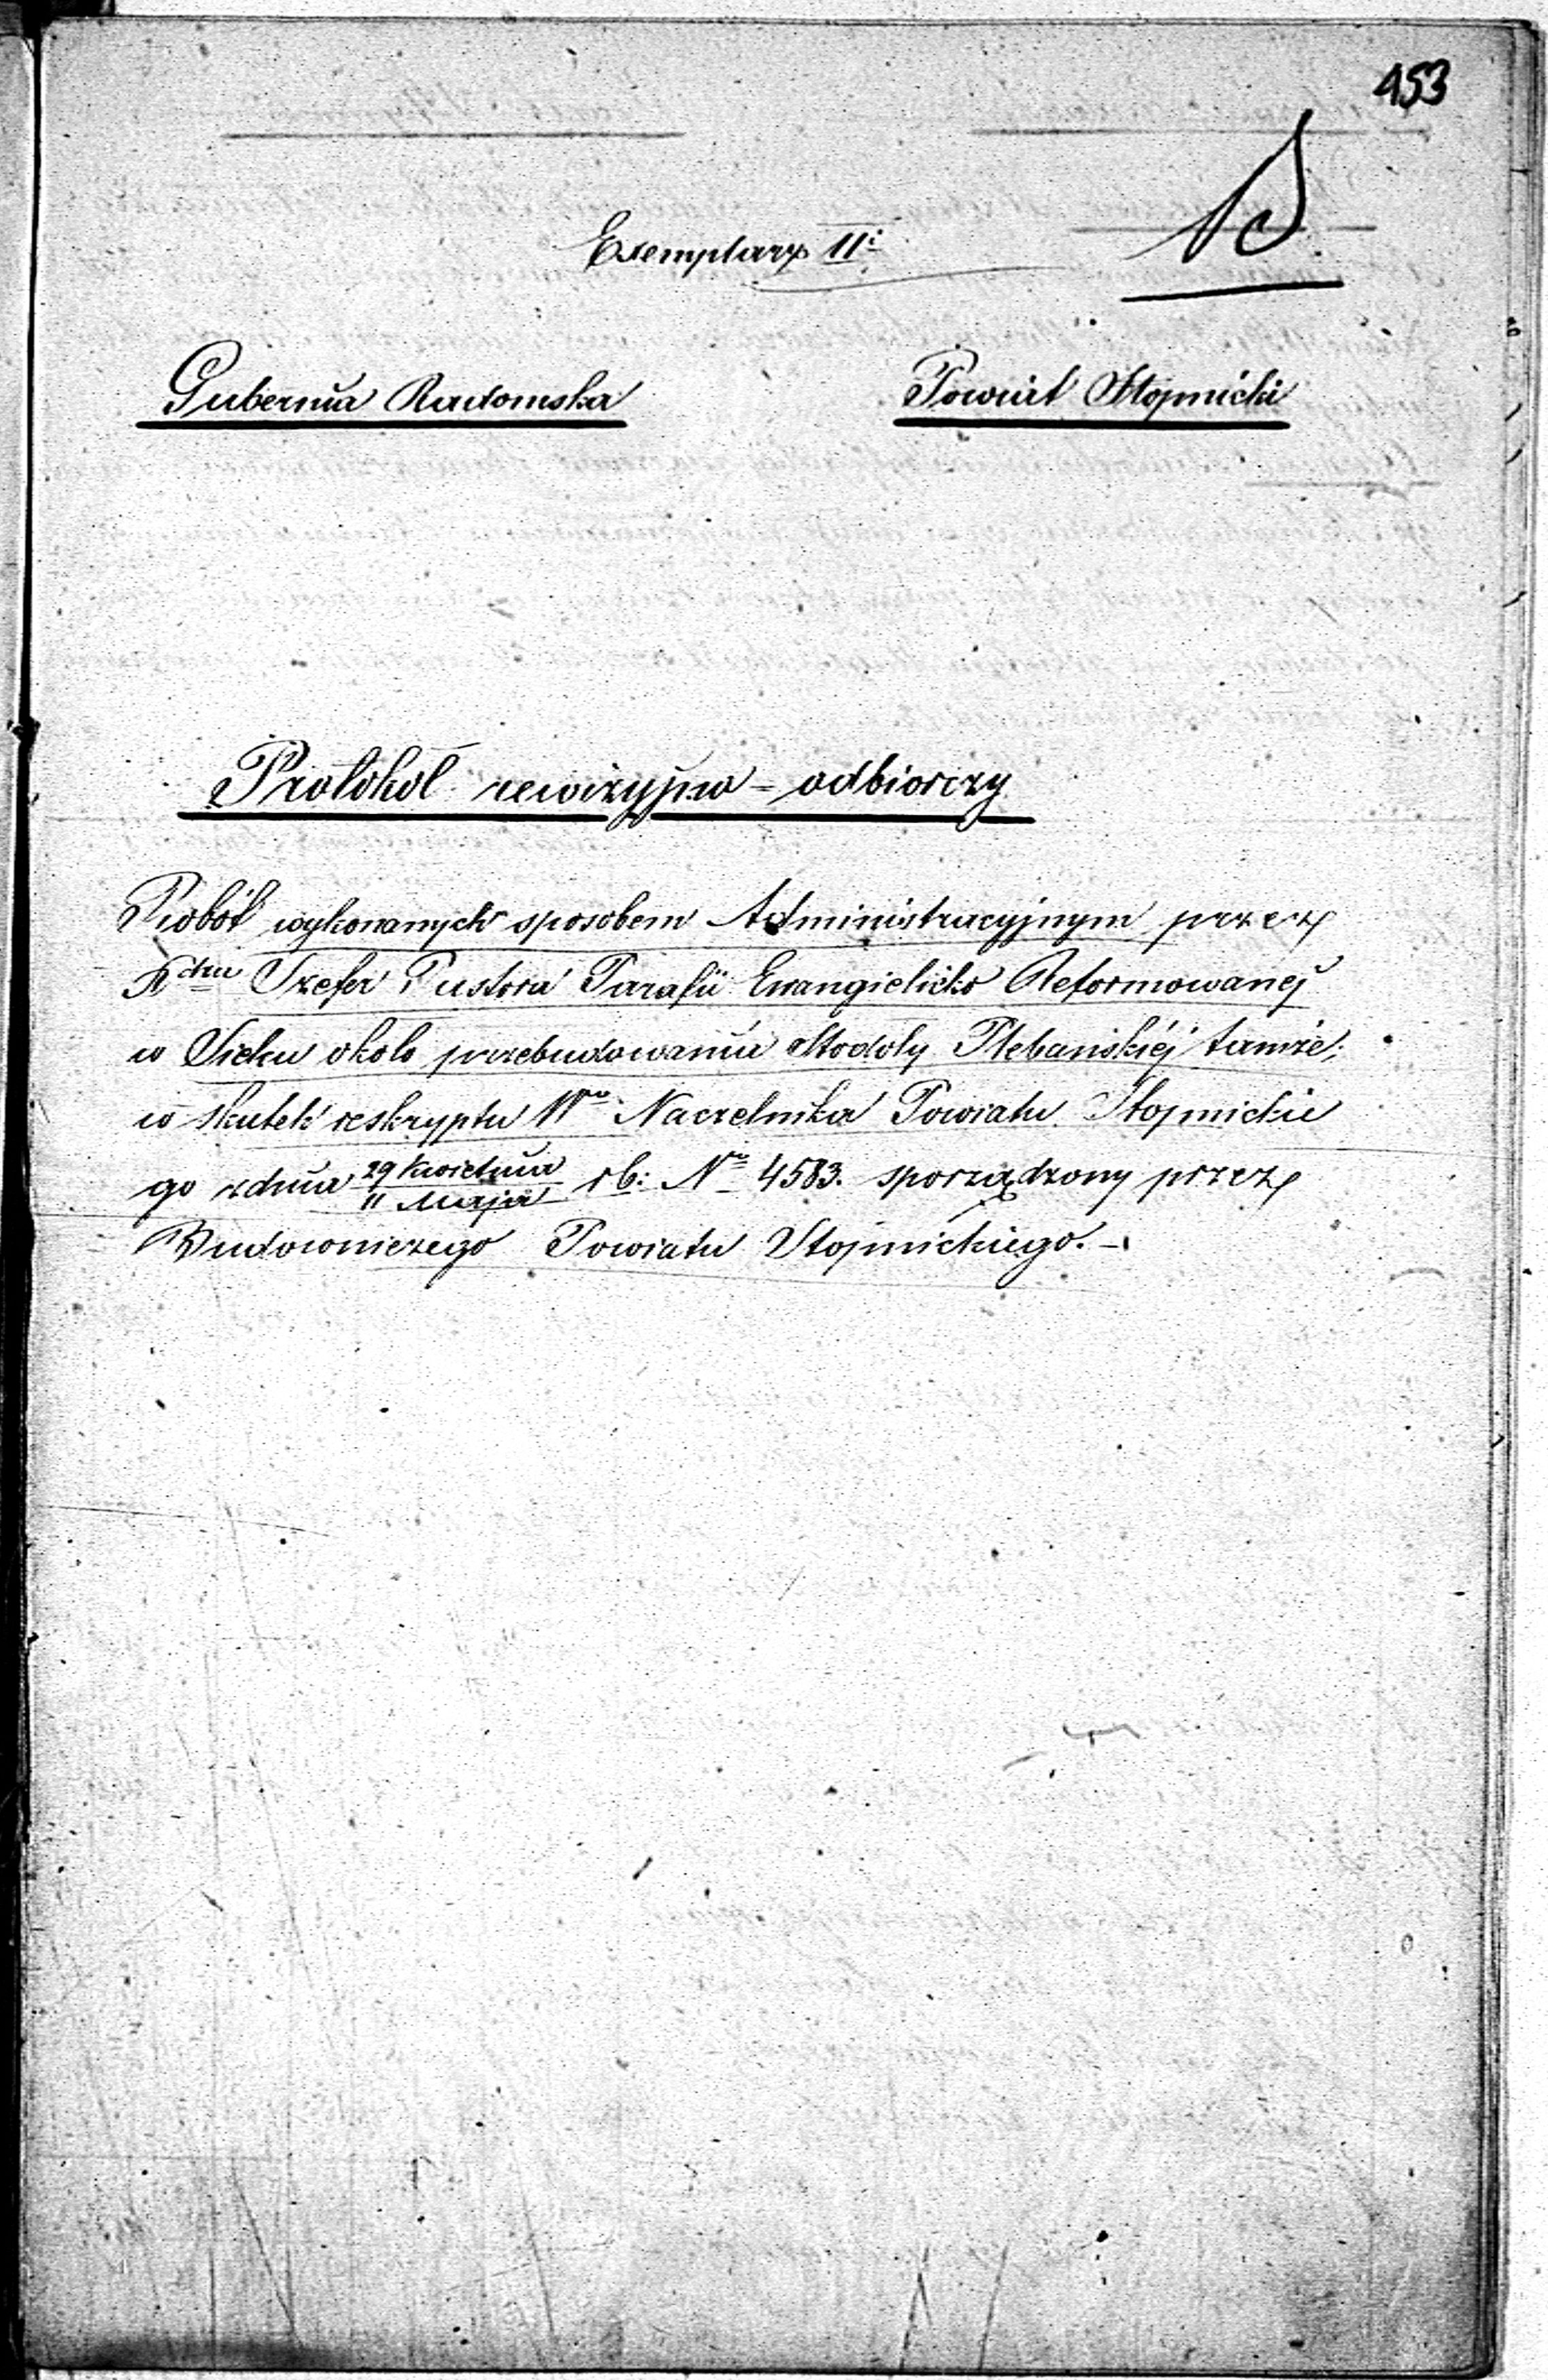 453
Exemplarz II:
Gubernia Radomska
Powiat Stopnicki
Protokol rewizyjno = odbiorczy
Robót wykonanych sposobem Administracyjnym przez
Xdza Szefer Pastora Parafii Ewangielicko Reformowanej
w Sielcu około przebudowania Stodoły Plebańskiéj tamże;
w skutek reskryptu Wgo Naczelnika Powiatu Stopnickie
go z dnia 29 Kwietnia / 11 Maja rb: No 4583. sporządzony przez
Budowniczego Powiatu Stopnickiego. –